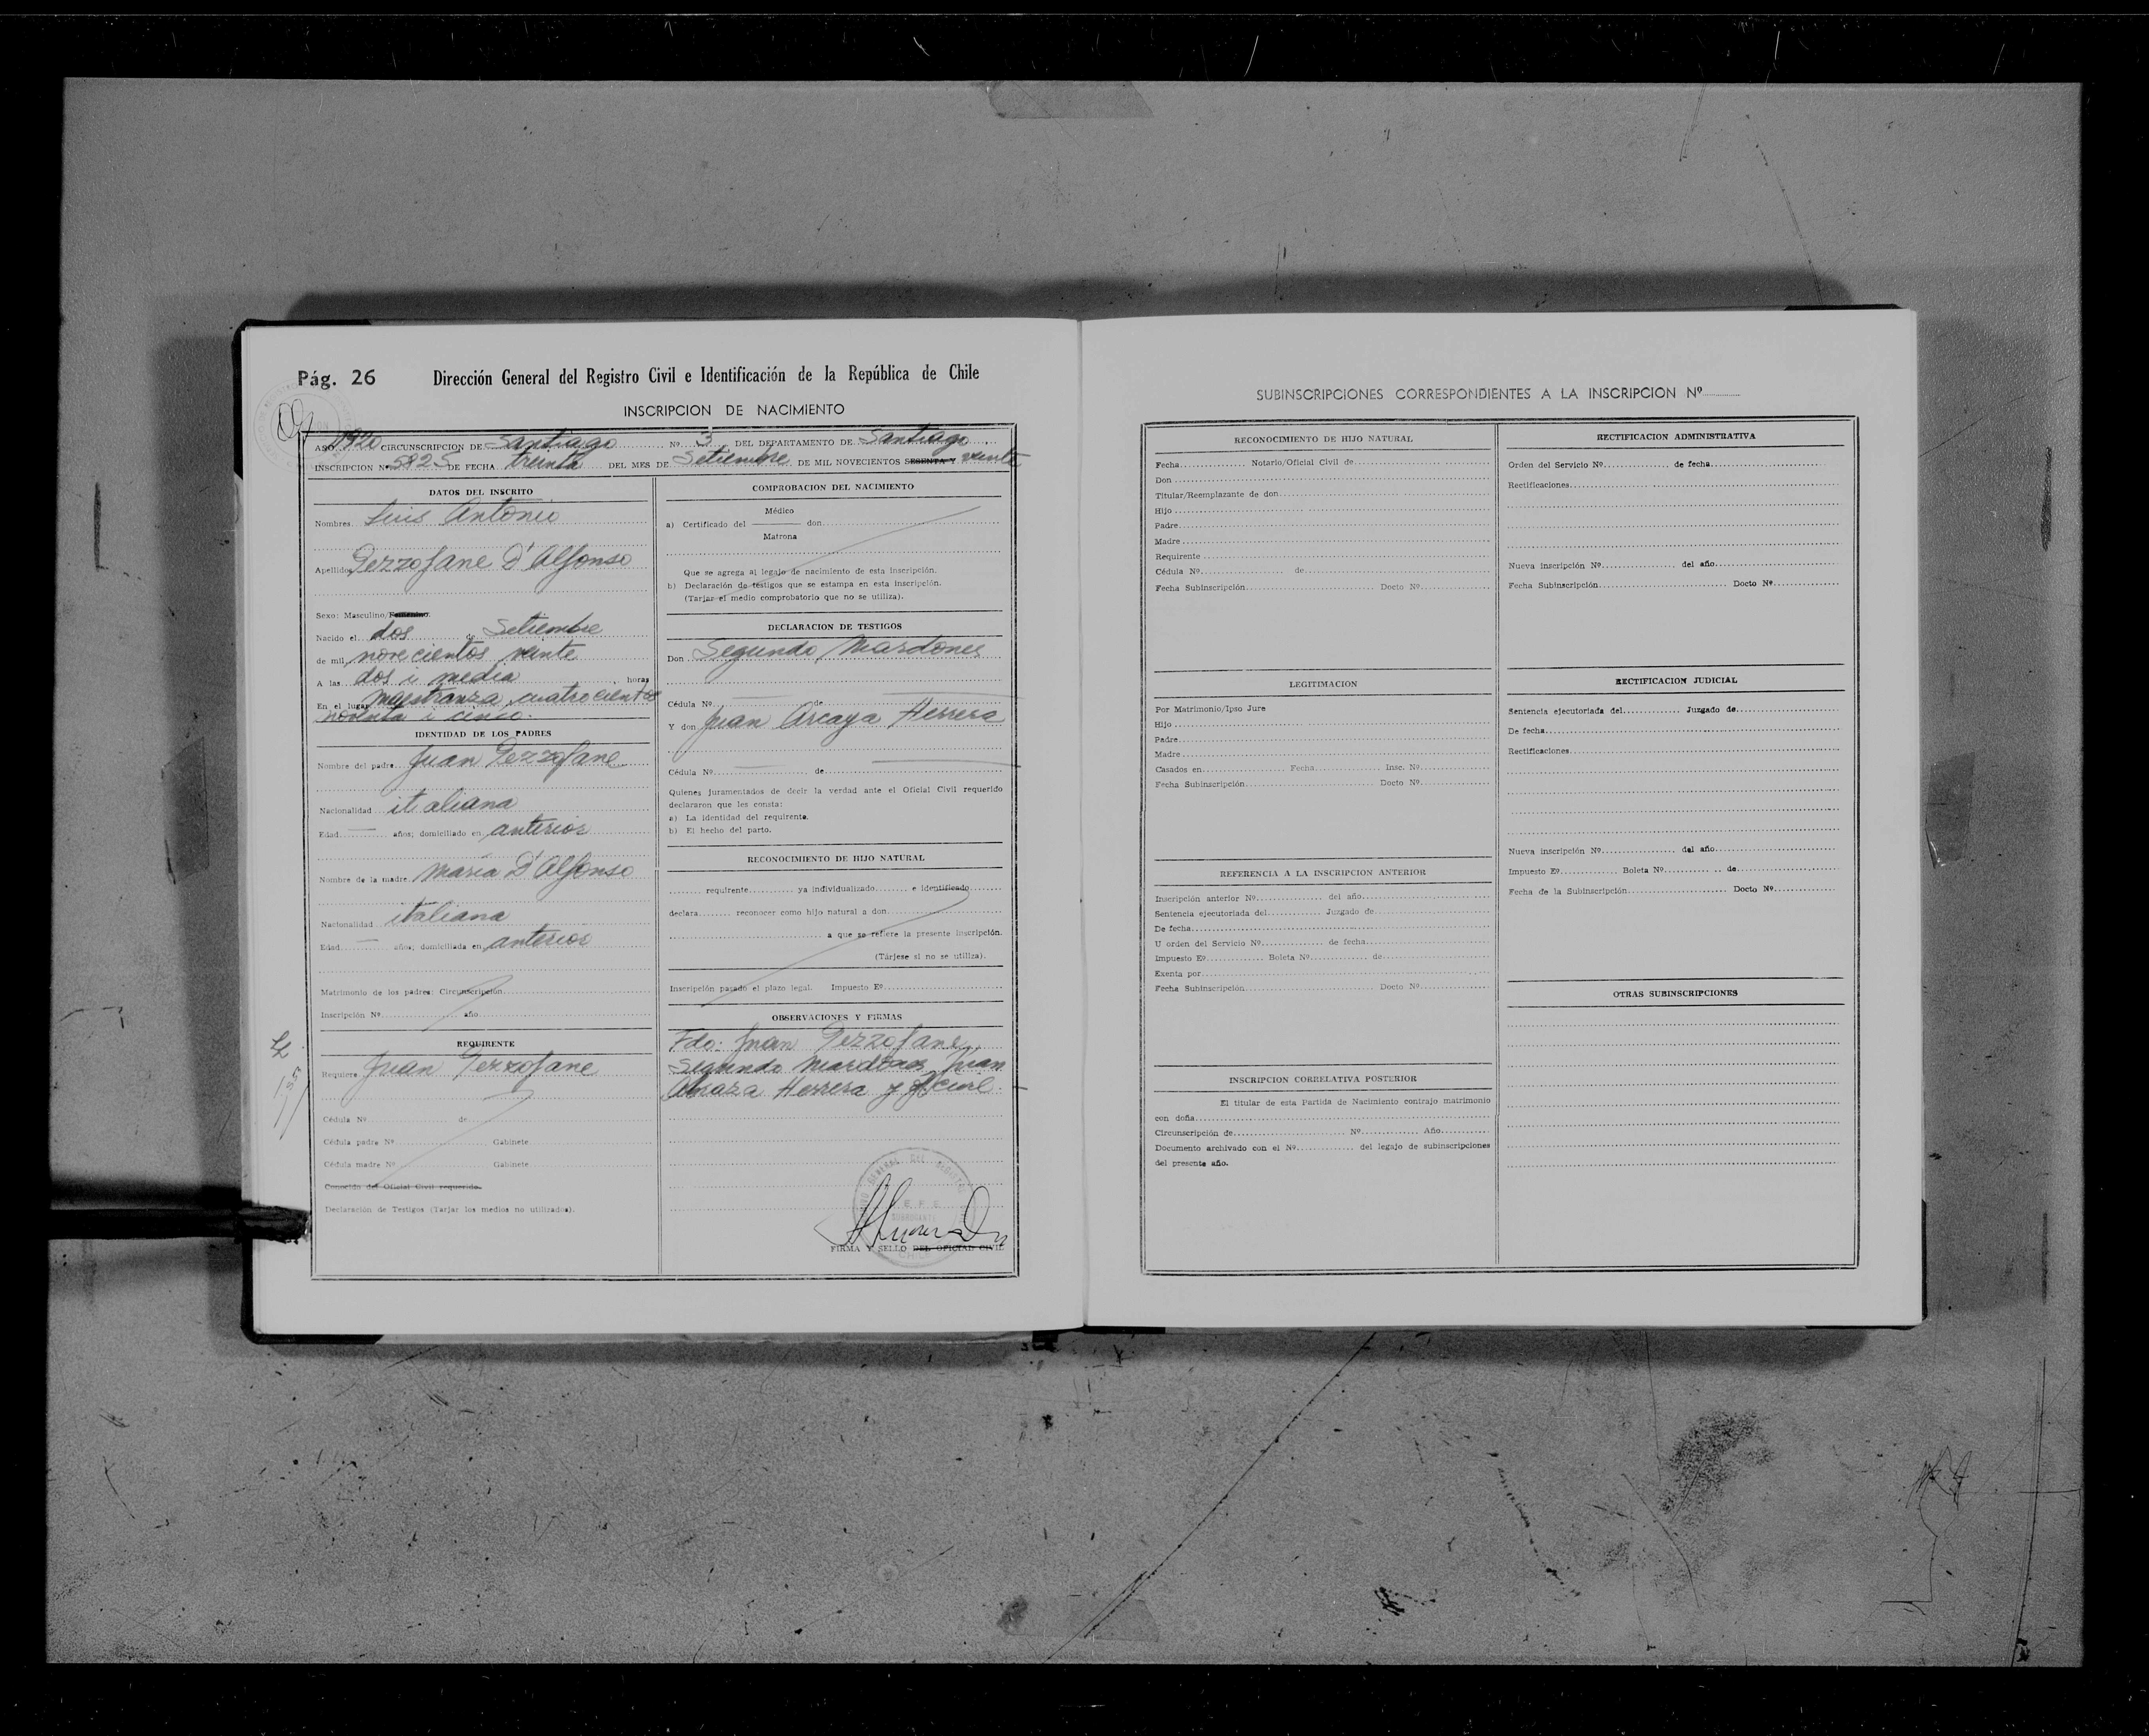 Pág. 26 Dirección General del Registro Civil e Identificación de la República de Chile
INSCRIPCION DE NACIMIENTO
AÑO 1920 CIRCUNSCRIPCION DE Santiago Nº 3 DEL DEPARTAMENTO DE Santiago
INSCRIPCION Nº 5825 DE FECHA treinta DEL MES DE Setiembre DE MIL NOVECIENTOS SESENTA Y veinte
DATOS DEL INSCRITO
Nombres Luis Antonio
Apellidos Pezzofane D'Alfonso
Sexo: Masculino/Femenino.
Nacido el dos de Setiembre
de mil novecientos veinte
A las dos i media horas
En el lugar Maestranza cuatrocientos
noventa i cinco.
IDENTIDAD DE LOS PADRES
Nombre del padre Juan Pezzofane
Nacionalidad italiana
Edad — años; domiciliado en anterior
Nombre de la madre María D'Alfonso
Nacionalidad italiana
Edad — años; domiciliada en anterior
Matrimonio de los padres: Circunscripción
Inscripción Nº año
REQUIRENTE
Requiere Juan Pezzofane
Cédula Nº de
Cédula padre Nº Gabinete
Cédula madre Nº Gabinete
Conocido del Oficial Civil requerido.
Declaración de Testigos (Tarjar los medios no utilizados).
COMPROBACION DEL NACIMIENTO
Médico
a) Certificado del don
Matrona
Que se agrega al legajo de nacimiento de esta inscripción.
b) Declaración de testigos que se estampa en esta inscripción.
(Tarjar el medio comprobatorio que no se utiliza).
DECLARACION DE TESTIGOS
Don Segundo Mardones
Cédula Nº de
Y don Juan Arcaya Herrera
Cédula Nº de
Quienes juramentados de decir la verdad ante el Oficial Civil requerido
declararon que les consta:
a) La identidad del requirente.
b) El hecho del parto.
RECONOCIMIENTO DE HIJO NATURAL
requirente ya individualizado e identificado
declara reconocer como hijo natural a don
a que se refiere la presente inscripción.
(Tárjese si no se utiliza).
Inscripción pasado el plazo legal. Impuesto Eº
OBSERVACIONES Y FIRMAS
Fdo: Juan Pezzofane,
Segundo Mardones, Juan
Herrera y
FIRMA Y SELLO DEL OFICIAL CIVIL
SUBINSCRIPCIONES CORRESPONDIENTES A LA INSCRIPCION Nº
RECONOCIMIENTO DE HIJO NATURAL
Fecha Notario/Oficial Civil de
Don
Titular/Reemplazante de don
Hijo
Padre
Madre
Requirente
Cédula Nº de
Fecha Subinscripción Docto Nº
LEGITIMACION
Por Matrimonio/Ipso Jure
Hijo
Padre
Madre
Casados en Fecha Insc. Nº
Fecha Subinscripción Docto Nº
REFERENCIA A LA INSCRIPCION ANTERIOR
Inscripción anterior Nº del año
Sentencia ejecutoriada del Juzgado de
De fecha
U orden del Servicio Nº de fecha
Impuesto Eº Boleta Nº de
Exenta por
Fecha Subinscripción Docto Nº
INSCRIPCION CORRELATIVA POSTERIOR
El titular de esta Partida de Nacimiento contrajo matrimonio
con doña
Circunscripción de Nº Año
Documento archivado con el Nº del legajo de subinscripciones
del presente año.
RECTIFICACION ADMINISTRATIVA
Orden del Servicio Nº de fecha
Rectificaciones
Nueva inscripción Nº del año
Fecha Subinscripción Docto Nº
RECTIFICACION JUDICIAL
Sentencia ejecutoriada del Juzgado de
De fecha
Rectificaciones
Nueva inscripción Nº del año
Impuesto Eº Boleta Nº de
Fecha de la Subinscripción Docto Nº
OTRAS SUBINSCRIPCIONES